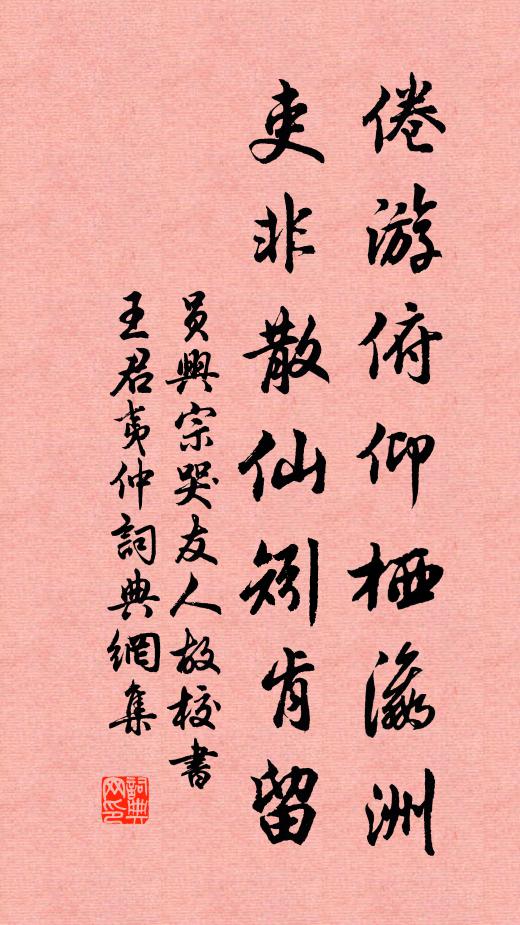 倦游俯仰栖瀛洲
吏非散仙矧肯留
員興宗哭友人故校書
王君夷仲詞典網集
詞典
网印